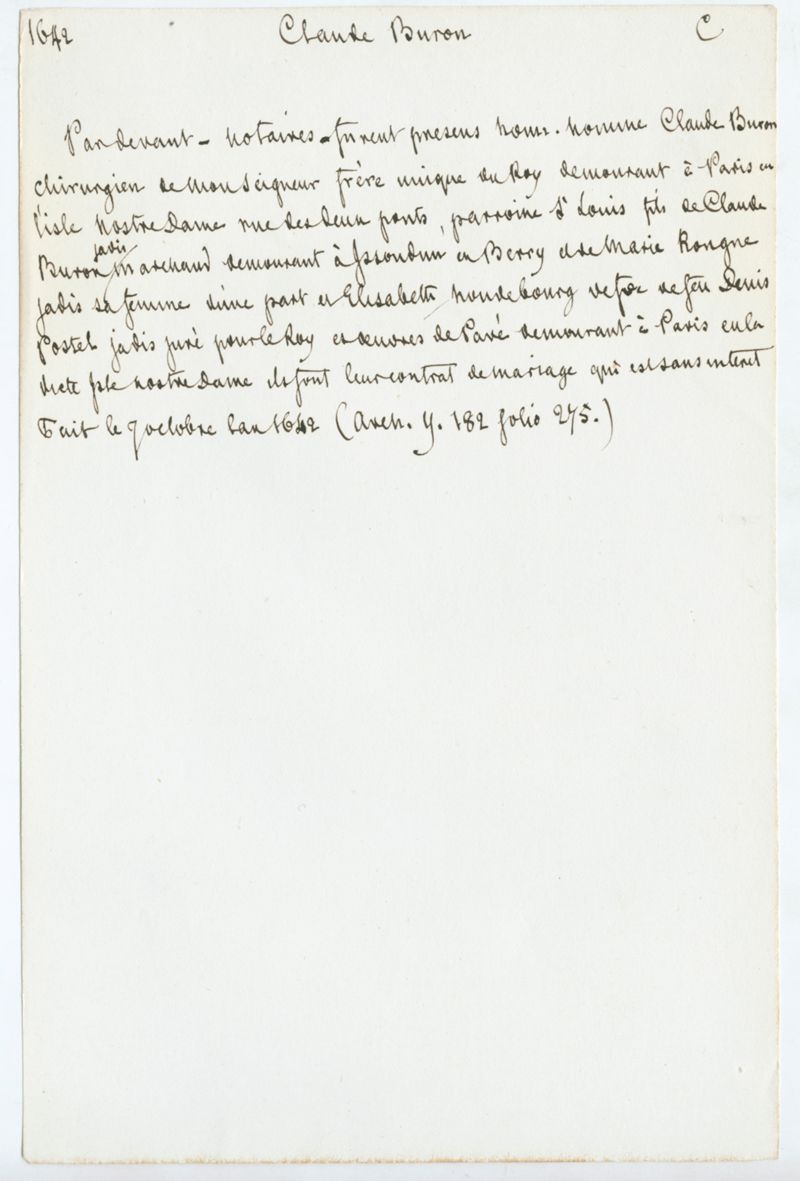 1642 Claude Buron C
Pardevant - notaires - furent presens hono. homme Claude Buron
chirurgien de Monseigneur frère unique du Roy demourant à Paris en
l'isle Nostre Dame rue des deux ponts, parroisse St Louis fils de Claude
Buron jadis marchand demourant à Issoudun en Berry et de Marie Rongne
jadis sa femme d'une part et Elisabeth houdebourg vefve de feu Denis
Postel jadis juré pour le Roy es oeuvres de Pavé demourant à Paris en la
dicte Isle nostre Dame ils font leur contrat de mariage qui est sans interet
Fait le 7 octobre lan 1642 (Arch. Y. 182 folio 275.)